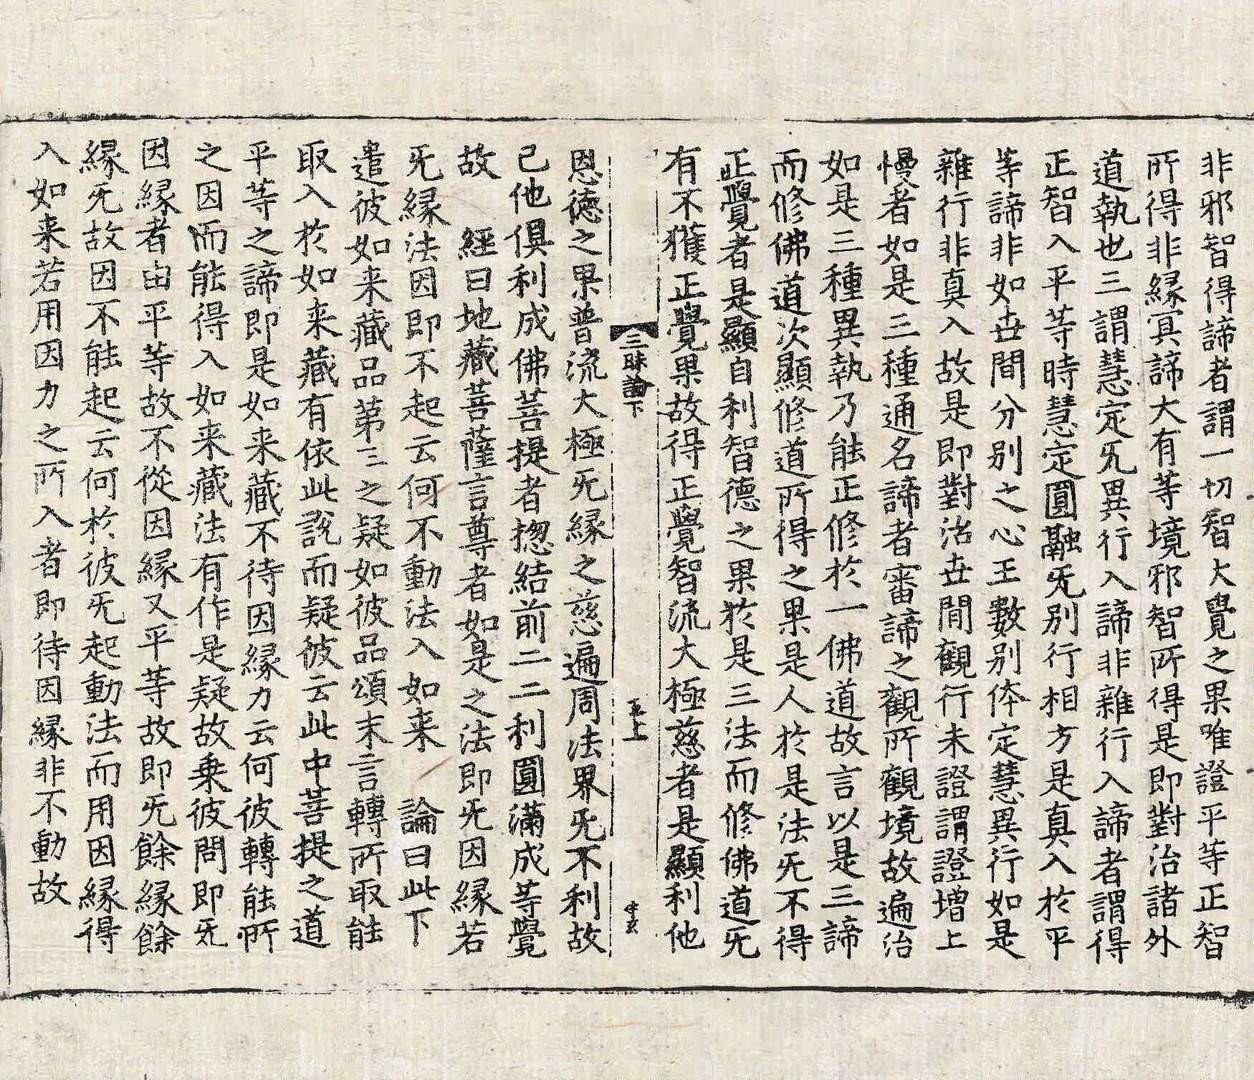 非邪智得諦者謂一切智大覺之果唯證平等正智
所得非縁冥諦大有等境邪智所得是即對治諸外
道執也三謂慧定旡異行入諦非雜行入諦者謂得
正智入平等時慧定圓融旡別行相方是真入於平
等諦非如世間分別之心王數別体定慧異行如是
雜行非真入故是即對治世間觀行未證謂證增上
慢者如是三種通名諦者審諦之觀所觀境故遍治
如是三種異執乃能正修於一佛道故言以是三諦
而修佛道次顯修道所得之果是人於是法旡不得
正覺者是顯自利智德之果於是三法而修佛道旡
有不獲正覺果故得正覺智流大極慈者是顯利他
三昧論下
五上
恩德之果普流大極旡縁之慈遍周法界旡不利故
己他俱利成佛菩提者揔結前二二利圓滿成等覺
故　經曰地藏菩薩言尊者如是之法即旡因縁若
旡縁法因即不起云何不動法入如来　論曰此下
遣彼如来藏品第三之疑如彼品頌末言轉所取能
取入於如来藏有依此說而疑彼云此中菩提之道
平等之諦即是如来藏不待因縁力云何彼轉能所
之因而能得入如来藏法有作是疑故乗彼問即旡
因縁者由平等故不從因縁又平等故即旡餘縁餘
縁旡故因不能起云何於彼旡起動法而用因縁得
入如来若用因力之所入者即待因縁非不動故